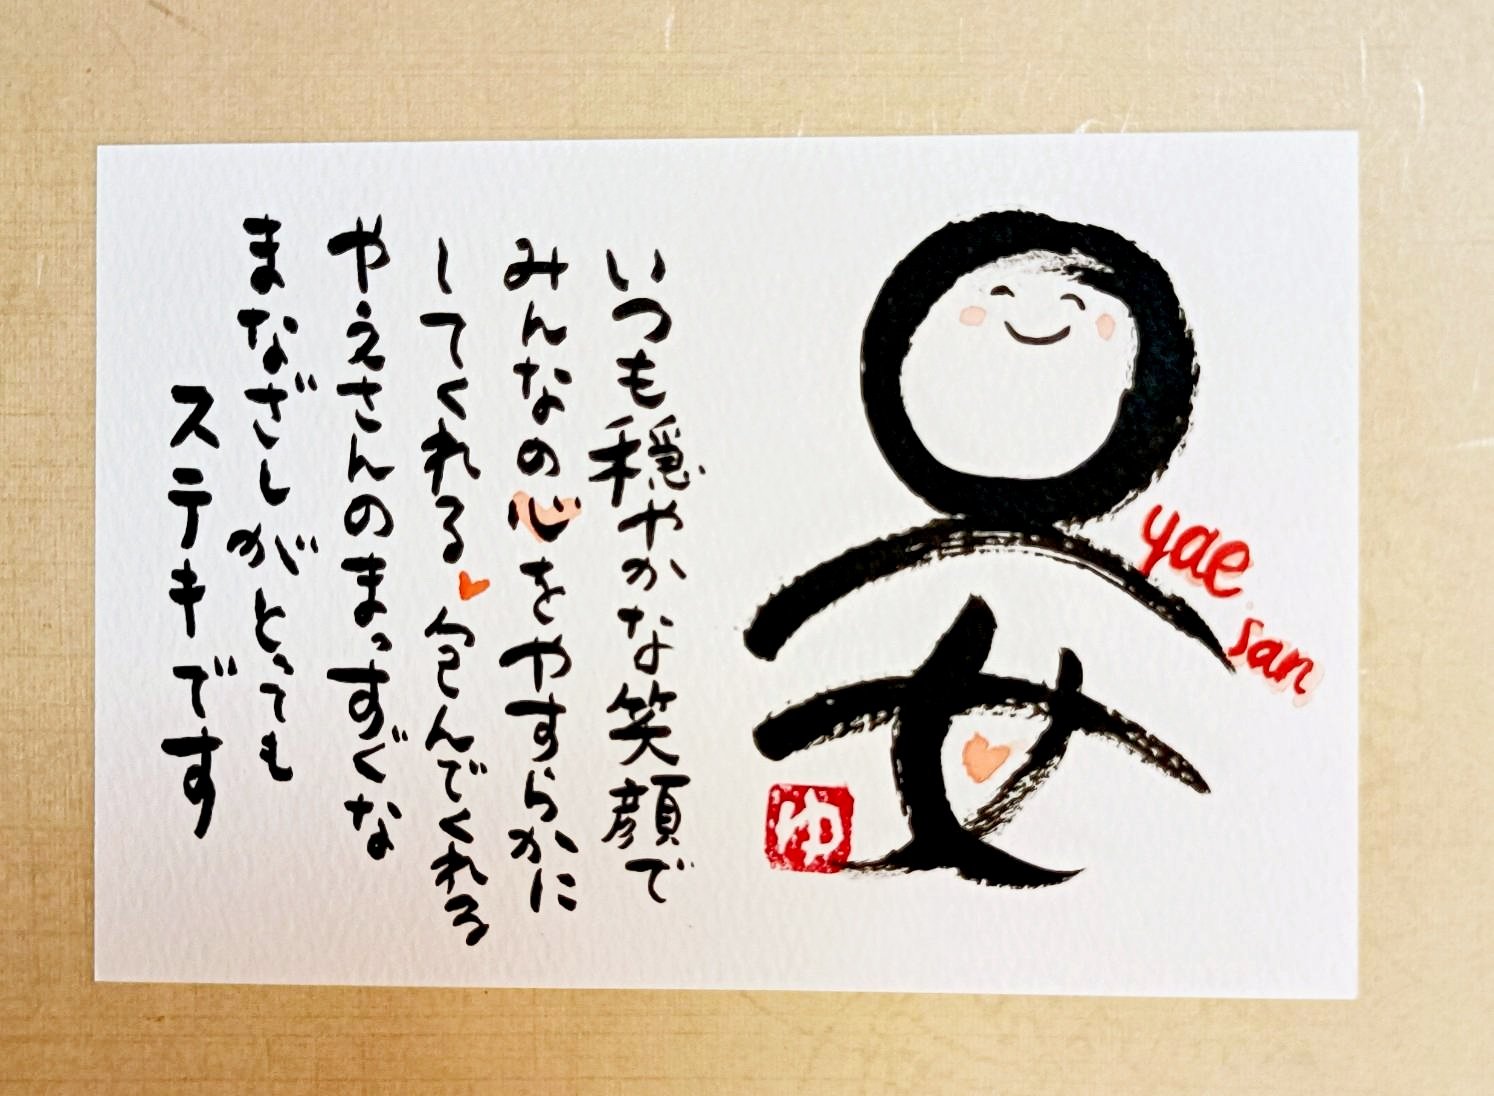 yae
san
ゆ
いつも穏やかな笑顔で
みんなの心をやすらかに
してくれる 包んでくれる
やえさんのまっすぐな
まなざしがとっても
ステキです